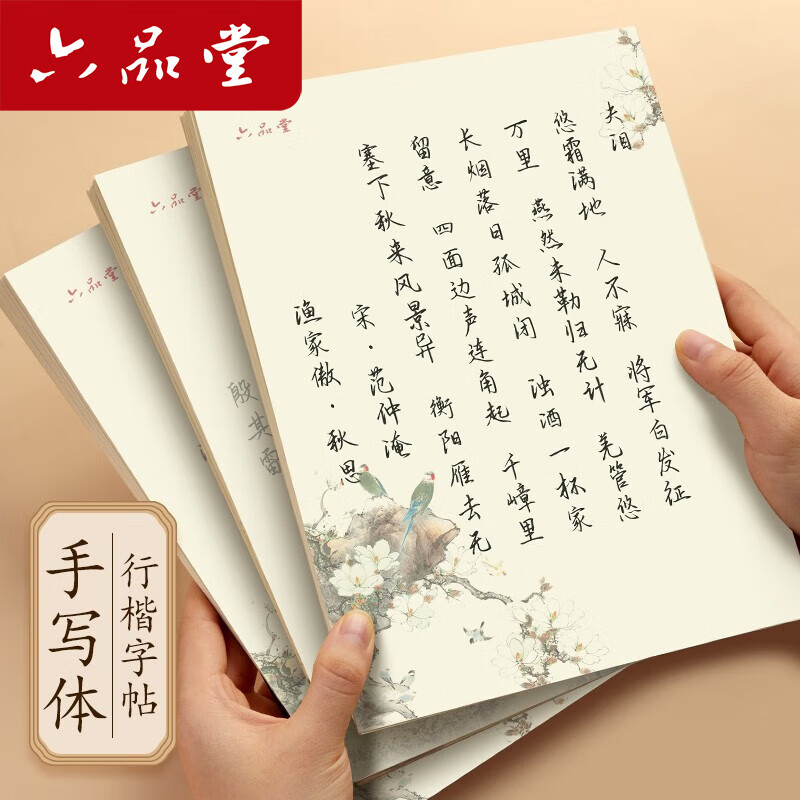 六品堂
六品堂
渔家傲·秋思
宋·范仲淹
塞下秋来风景异 衡阳雁去无
留意 四面边声连角起 千嶂里
长烟落日孤城闭 浊酒一杯家
万里 燕然未勒归无计 羌管悠
悠霜满地 人不寐 将军白发征
夫泪
六品堂
殷其雷
六品堂
手写体
行楷字帖